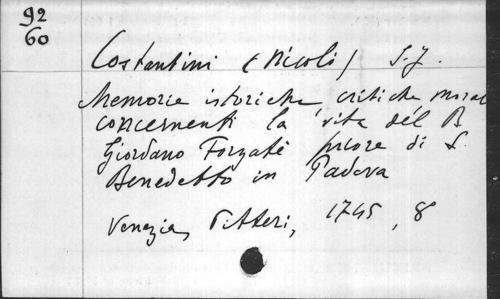 92
60
Costantini (Nicolò) S.J.
Memorie istoriche, critiche, moral
concernenti la vita del B
Giordano Forzatè priore di S.
Benedetto in Padova
Venezia, Pitteri, 1745, 8